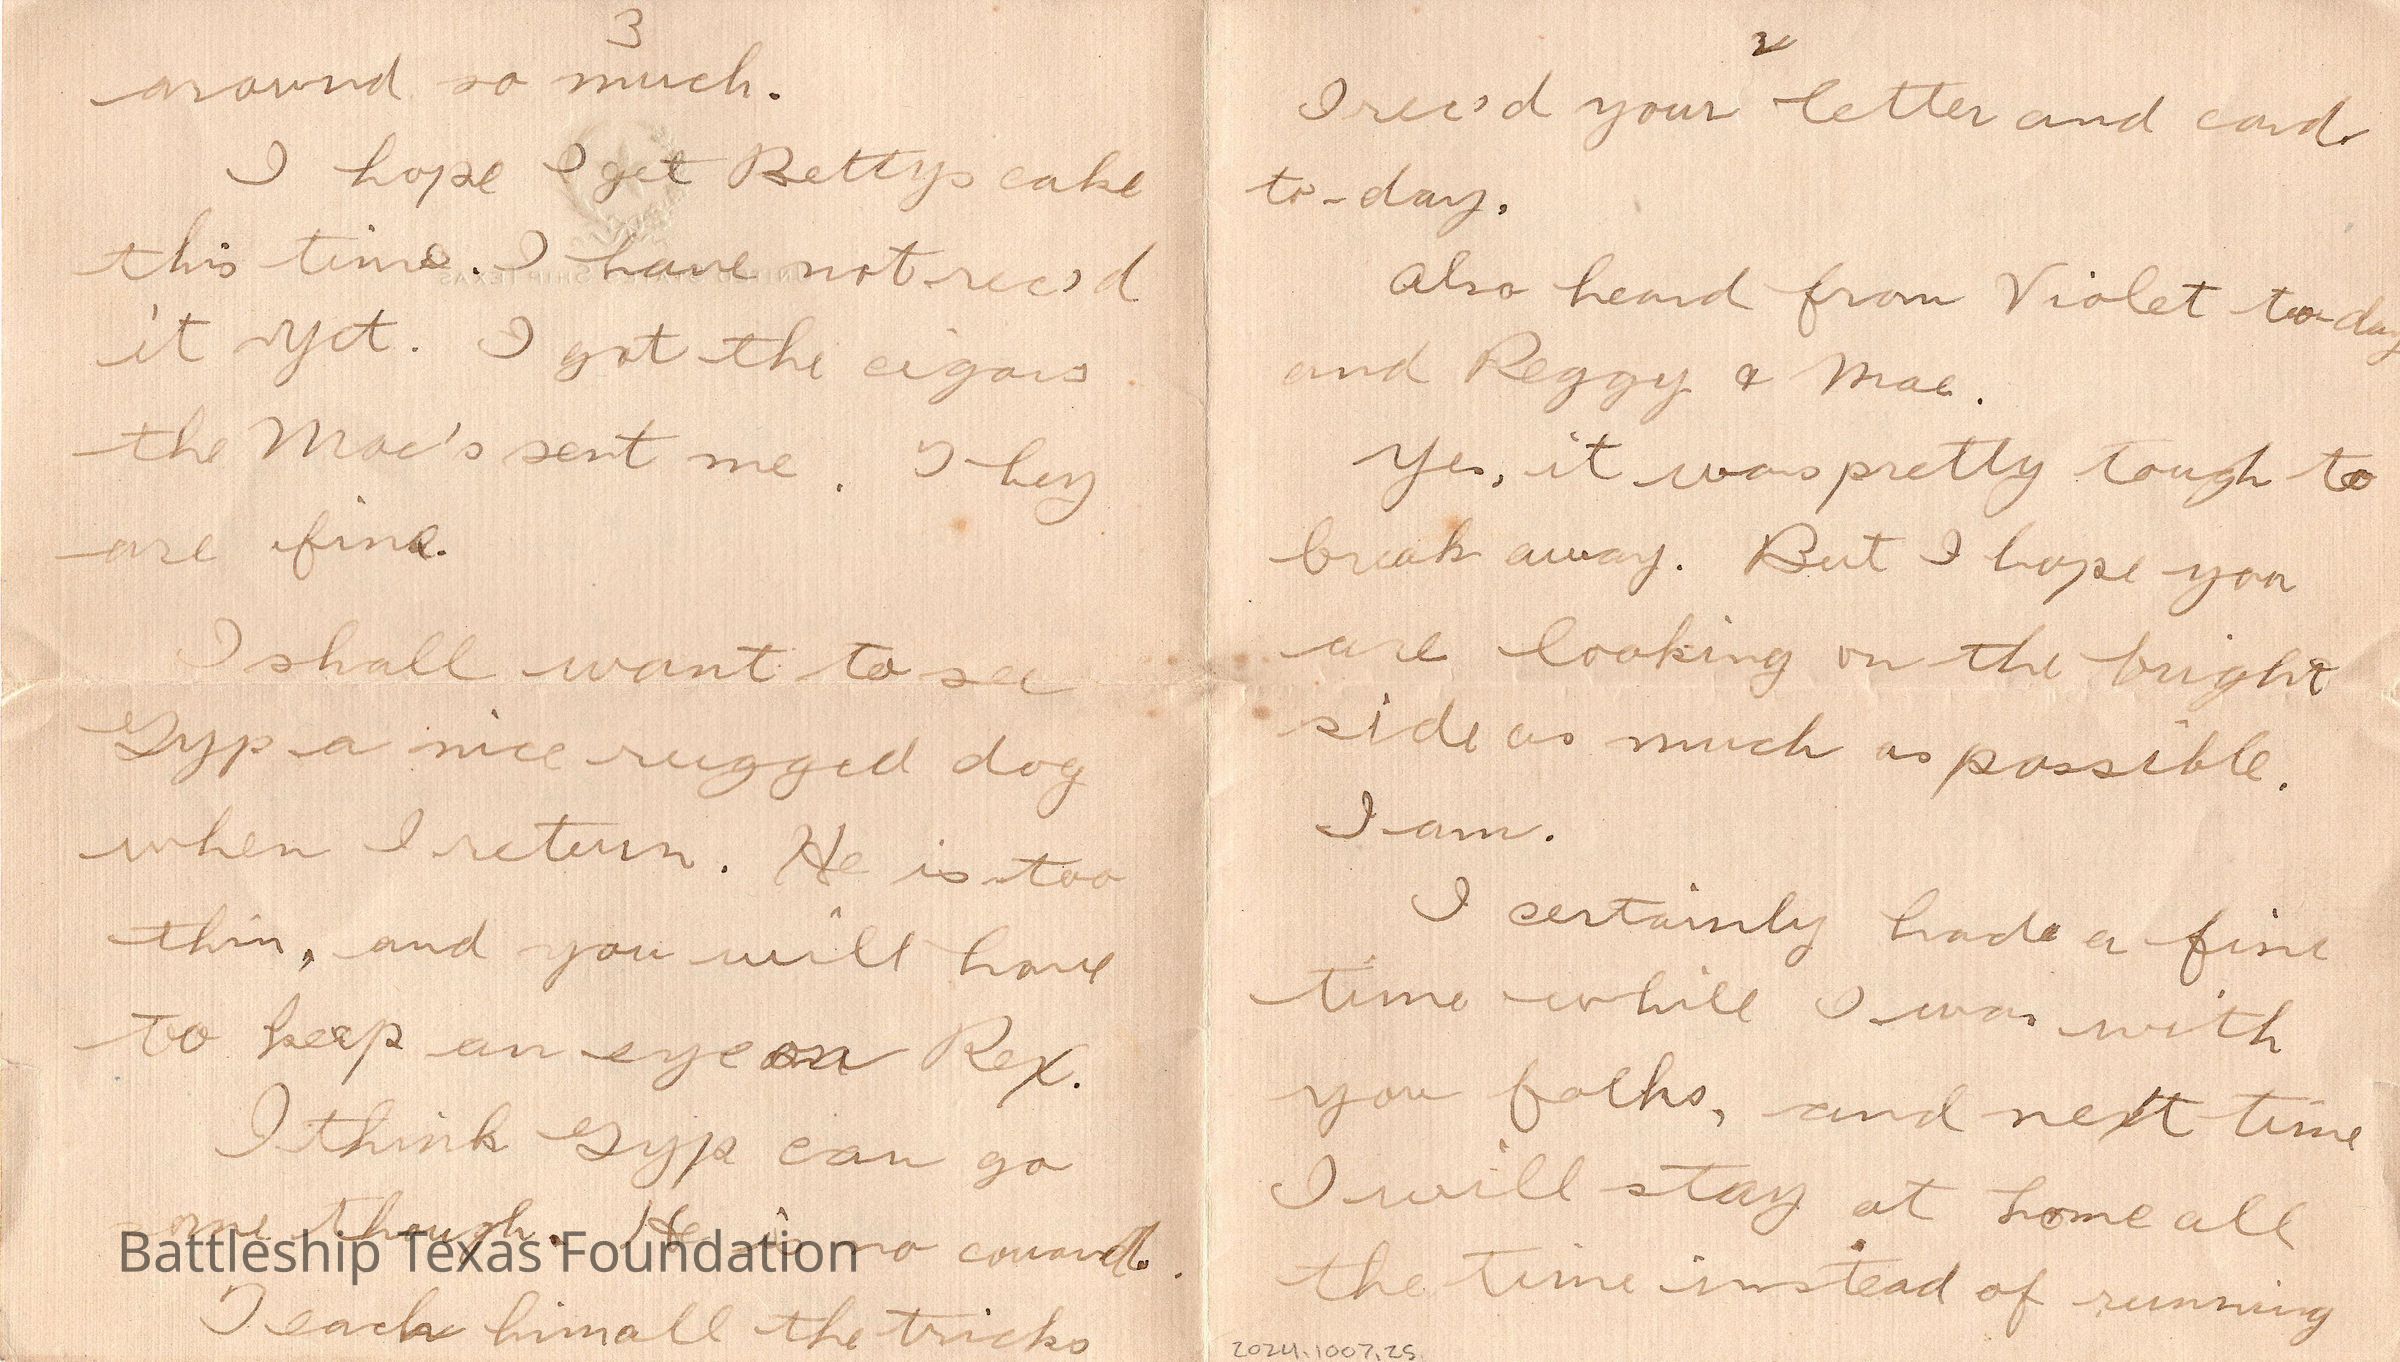 2
I rec'd your letter and card
to-day.
Also heard from Violet to-day
and Reggy & Mae.
Yes, it was pretty tough to
break away. But I hope you
are looking on the bright
side as much as possible.
I am.
I certainly had a fine
time while I was with
you folks, and next time
I will stay at home all
the time instead of running
2024.1007.25
3
around so much.
I hope I get Bettys cake
this time. I have not rec'd
it yet. I got the cigars
the Mac's sent me. They
are fine.
I shall want to see
Gyp a nice rugged dog
when I return. He is too
thin, and you will have
to keep an eye on Rex.
I think Gyp can go
some though. He is no coward.
Teach him all the tricks
UNITED STATES SHIP TEXAS
Battleship Texas Foundation